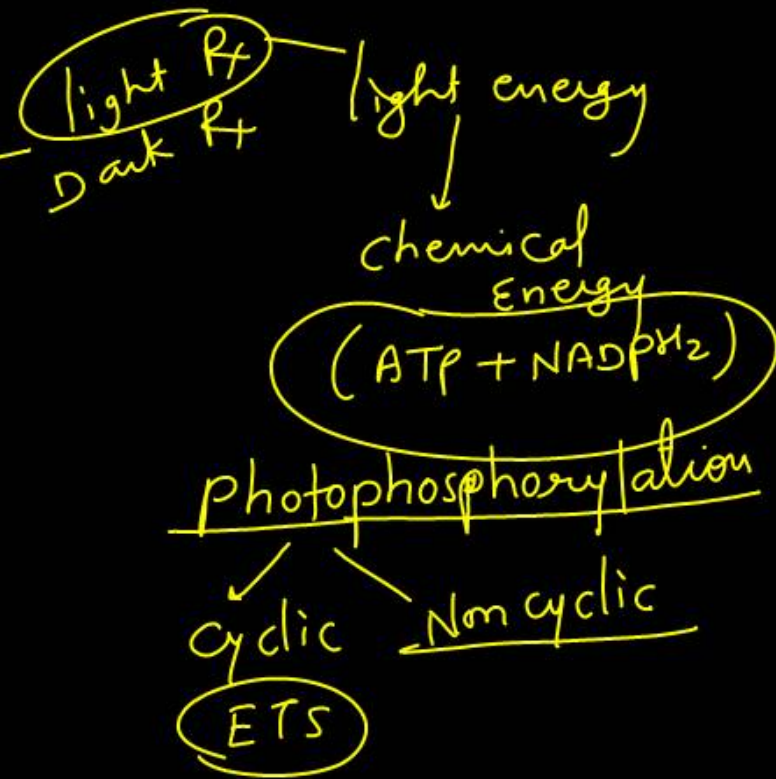 light Rx
Dark Rx
light energy
chemical
Energy
(ATP + NADPH2)
Photophosphorylation
Cyclic
Non cyclic
ETS